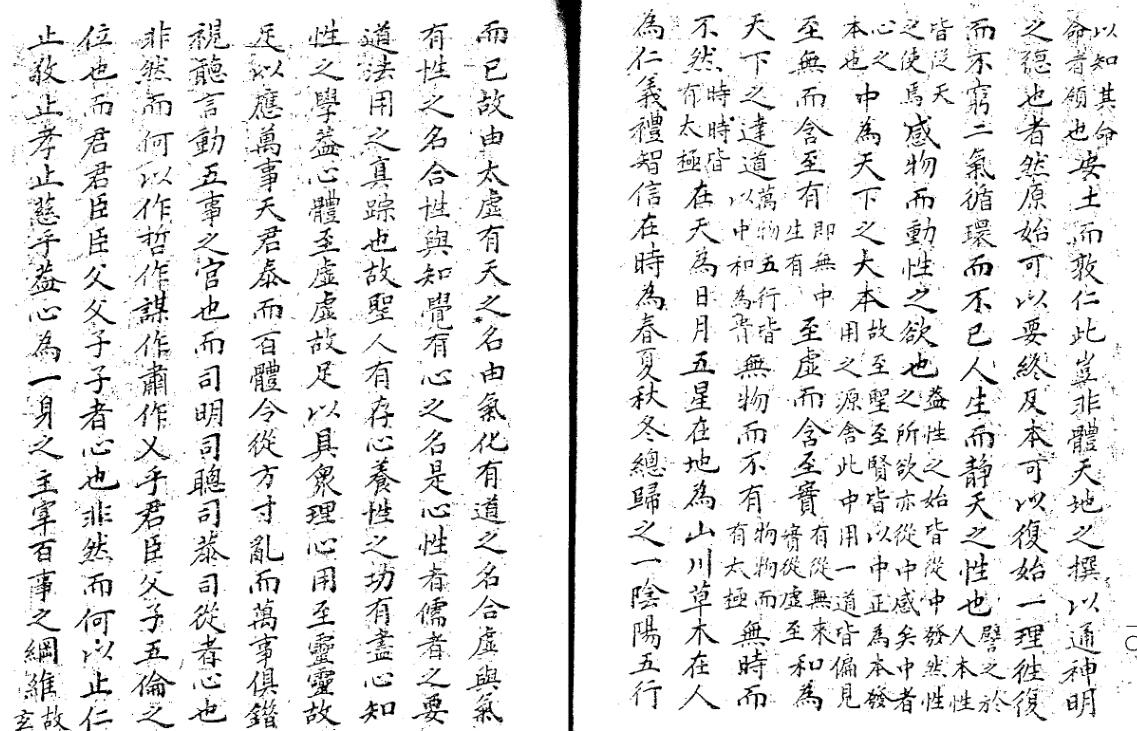 以知其命命者領也安土而敦仁此豈非體天地之撰以通神明
之德也者然原始可以要終反本可以復始一理徃復
而不窮二氣循環而不已人生而静天之性也譬之於人本性
皆從天之使焉感物而動性之欲也葢性之始皆從中發然性之所欲亦從中感矣中者
心之本也中為天下之大本故至聖至賢皆以中正為本發用之源舍此中用一道皆偏見
至無而含至有即無中生有至虛而含至實有從無来實從虛至和為
天下之達道萬物五行皆以中和為貴無物而不有物物而有太極無時而
不然時時皆有太極在天為日月五星在地為山川草木在人
為仁義禮智信在時為春夏秋冬總歸之一陰陽五行
而已故由太虛有天之名由氣化有道之名合虛與氣
有性之名合性與知覺有心之名是心性者儒者之要
道法用之真踪也故聖人有存心養性之功有盡心知
性之學葢心體至虛虛故足以具衆理心用至靈靈故
足以應萬事天君泰而百體令從方寸亂而萬事俱錯
視聽言動五事之官也而司明司聰司恭司從者心也
非然而何以作哲作謀作肅作乂乎君臣父子五倫之
位也而君君臣臣父父子子者心也非然而何以止仁
止敬止孝止慈乎葢心為一身之主宰百事之綱維故玄